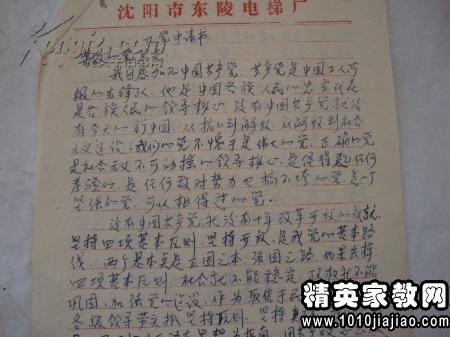 沈阳市东陵电梯厂
入党申请书
我自愿加入中国共产党，共产党是中国工人阶
级的先锋队，他是中国各族人民的忠实代表，
是各族人民的领导核心，没有中国共产党就没
有今天的新中国，从抗日到解放，从解放到社会
主义建设，我们的党不愧于是伟大的党，正确的党
是社会主义不可动摇的领导核心，是经得起任何
考验的，是任何敌对势力也搞不垮的党，是一个
坚强的党，可以相信过的党。
没有中国共产党，就没有十年改革开放的成就，
坚持四项基本原则，坚持开放，是我党的基本路
线，两个基本点是立国之本，强国之路，如果丢掉
四项基本原则，社会就不能稳定，政权就不能
巩固，加强党的建设，作为
各级领导 坚持原则，坚持
精英家教网
www.1010jiajiao.com